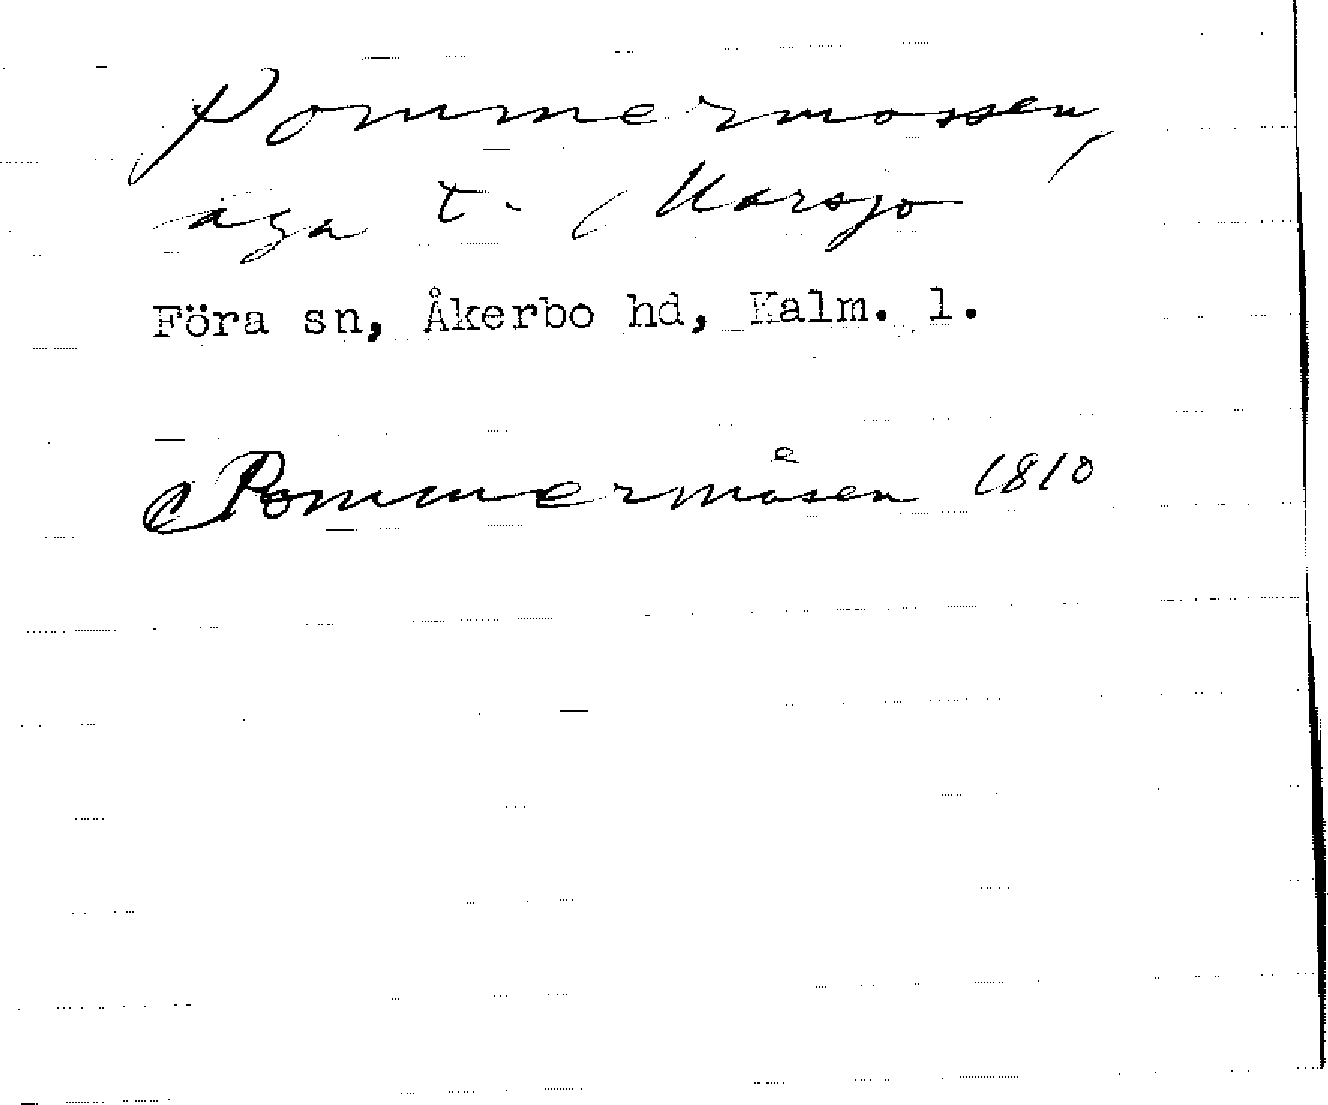 Pommermossen,
äga t. Marsjö
Föra sn, Åkerbo hd, Kalm. l.
Pommermåsen 1810